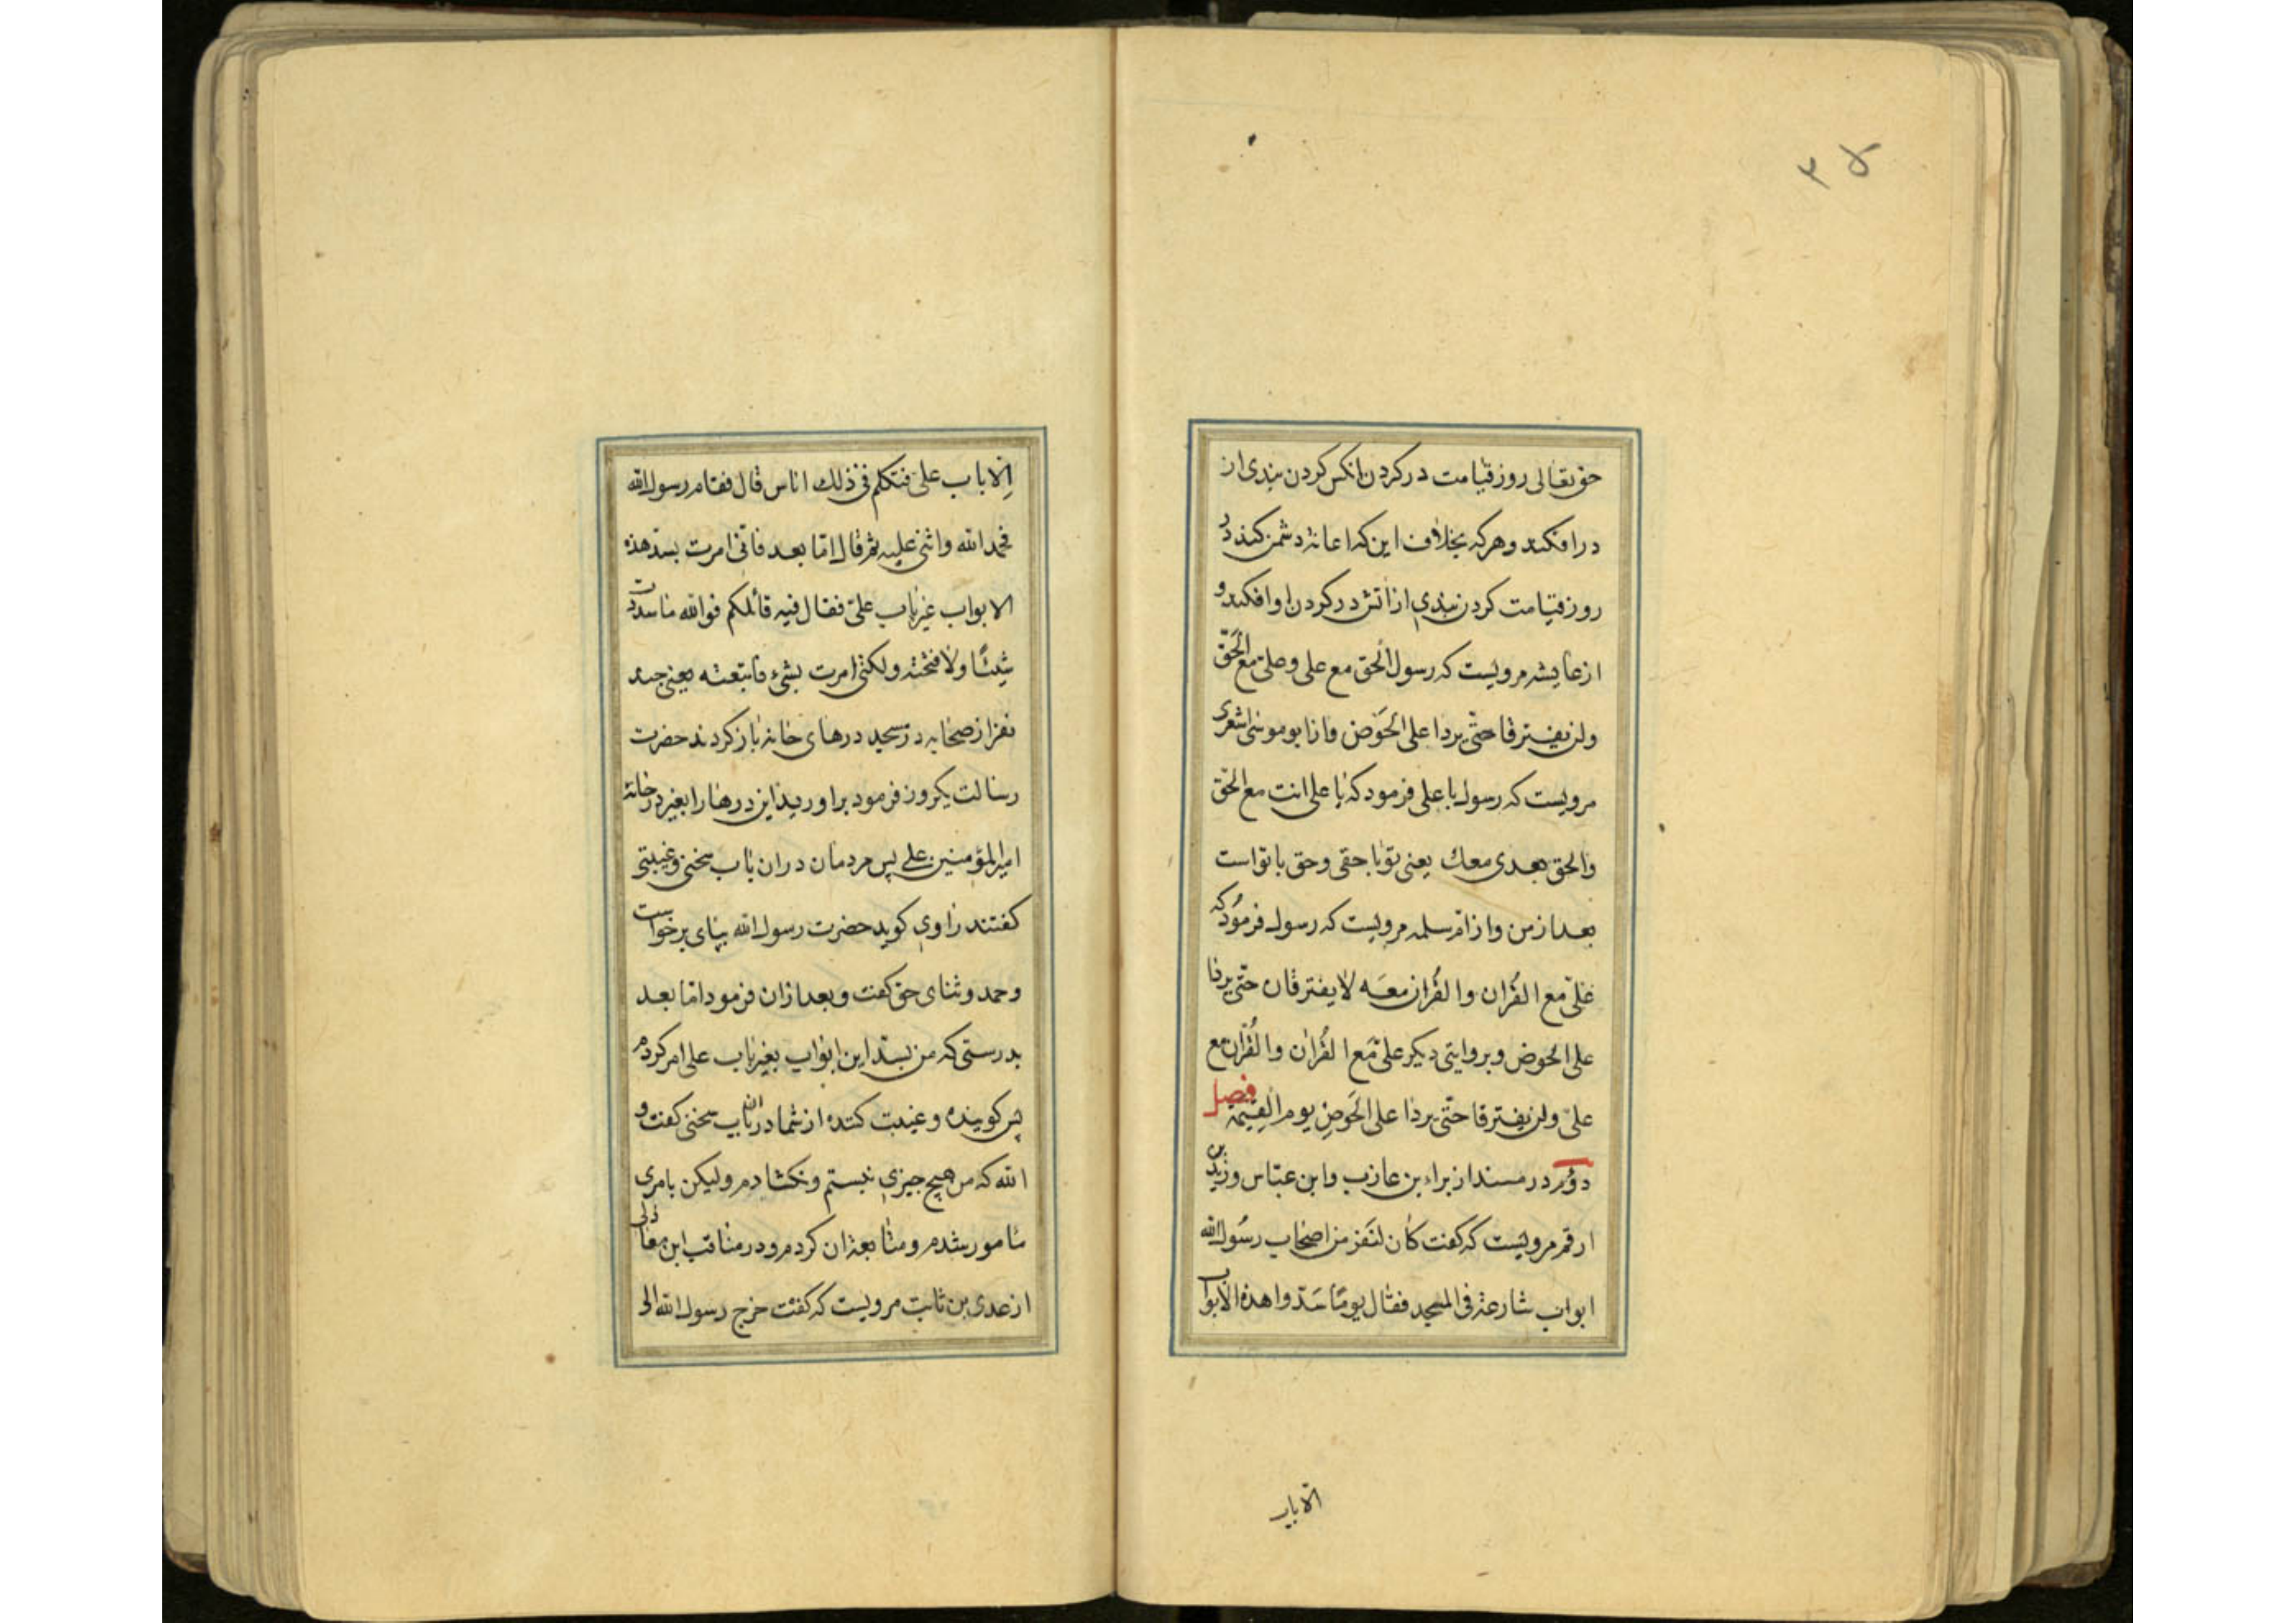 حق تعالی روز قیامت در کردن انکس کردن بندی از
در افکند و هرکه بخلاف این که اعانۀ دشمن کند در
روز قیامت کردن بندی از اتش در کردن او افکند و
از عایشه مرویست که رسول الحق مع علی و علی مع الحق
ولن یفترقا حتی یردا علی الحوض و از ابو موسی اشعری
مرویست که رسول با علی فرمود که یا علی انت مع الحق
والحق بعدی معك یعنی تو با حقی و حق با تو است
بعد از من و از ام سلمه مرویست که رسول فرمود که
علی مع القران والقران معه لا یفترقان حتی یردا
علی الحوض و بروایتی دیکر علی مع القران والقران مع
علی ولن یفترقا حتی یردا علی الحوض یوم القیمة فصل
دوم در مسند از براء بن عازب و ابن عباس و زید بن
ارقم مرویست که کفت کان لنفر من اصحاب رسول الله
ابواب شارعة فی المسجد فقال یوما سدوا هذه الابواب
الا باب
الا باب علی فتکلم فی ذلك اناس قال فقام رسول الله
فحمد الله واثنی علیه ثم قال اما بعد فانی امرت بسد هذه
الابواب غیر باب علی فقال فیه قائلکم فوالله ما سددت
شیئا ولا فتحته ولکنی امرت بشیء فاتبعته یعنی چند
نفر از صحابه در مسجد درهای خانه باز کردند حضرت
رسالت یکروز فرمود براورید این درها را بغیر در خانۀ
امیر المؤمنین علی پس مردمان در ان باب سخنی و غیبتی
کفتند راوی کوید حضرت رسول الله بپای برخواست
و حمد و ثنای حق کفت و بعد از ان فرمود اما بعد
بدرستی که من بسد این ابواب بغیر باب علی امر کردم
پس کوینده و غیبت کننده از شما در ان باب سخنی کفت و
الله که من هیچ چیزی نبستم و نکشادم ولیکن بامری
مامور شدم و متابعة ان کردم و در مناقب ابن مغازلی
از عدی بن ثابت مرویست که کفت خرج رسول الله الی